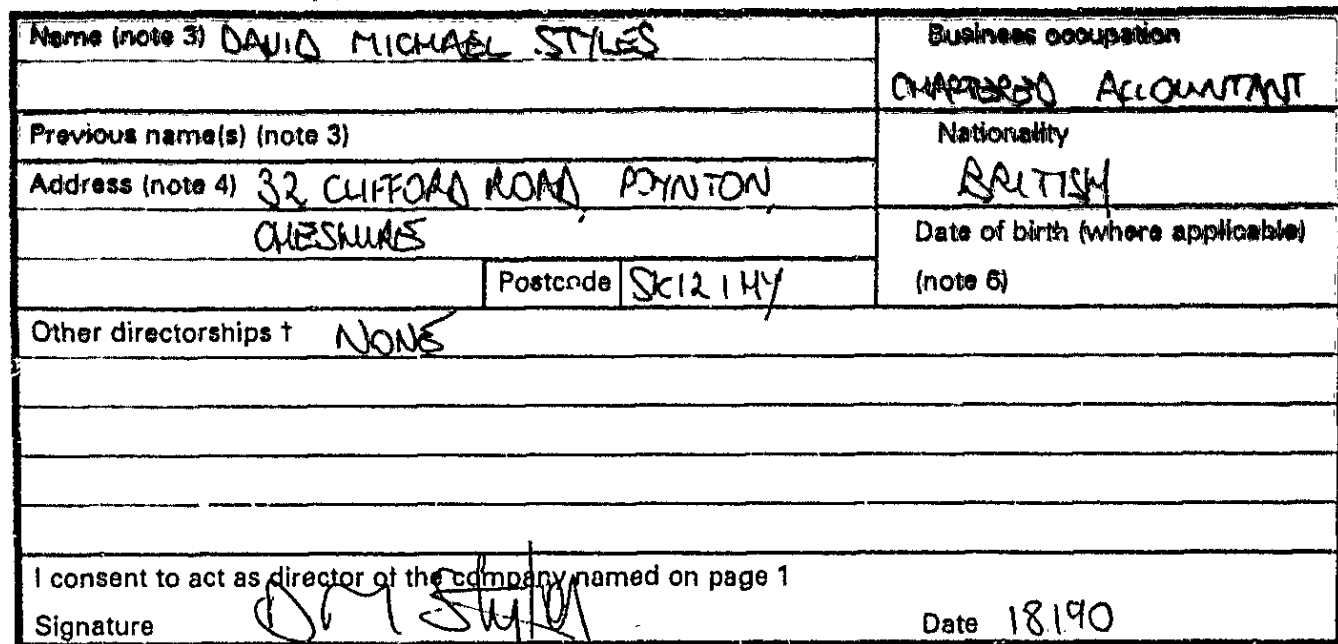 Name (note 3) DAVID MICHAEL STYLES
Business occupation
CHARTERED ACCOUNTANT
Previous name(s) (note 3)
Nationality
BRITISH
Address (note 4) 32 CLIFFORD ROAD, POYNTON,
CHESHIRE
Date of birth (where applicable)
(note 6)
Postcode SK12 1HY
Other directorships † NONE
I consent to act as director of the company named on page 1
Signature D M Styles
Date 18.1.90